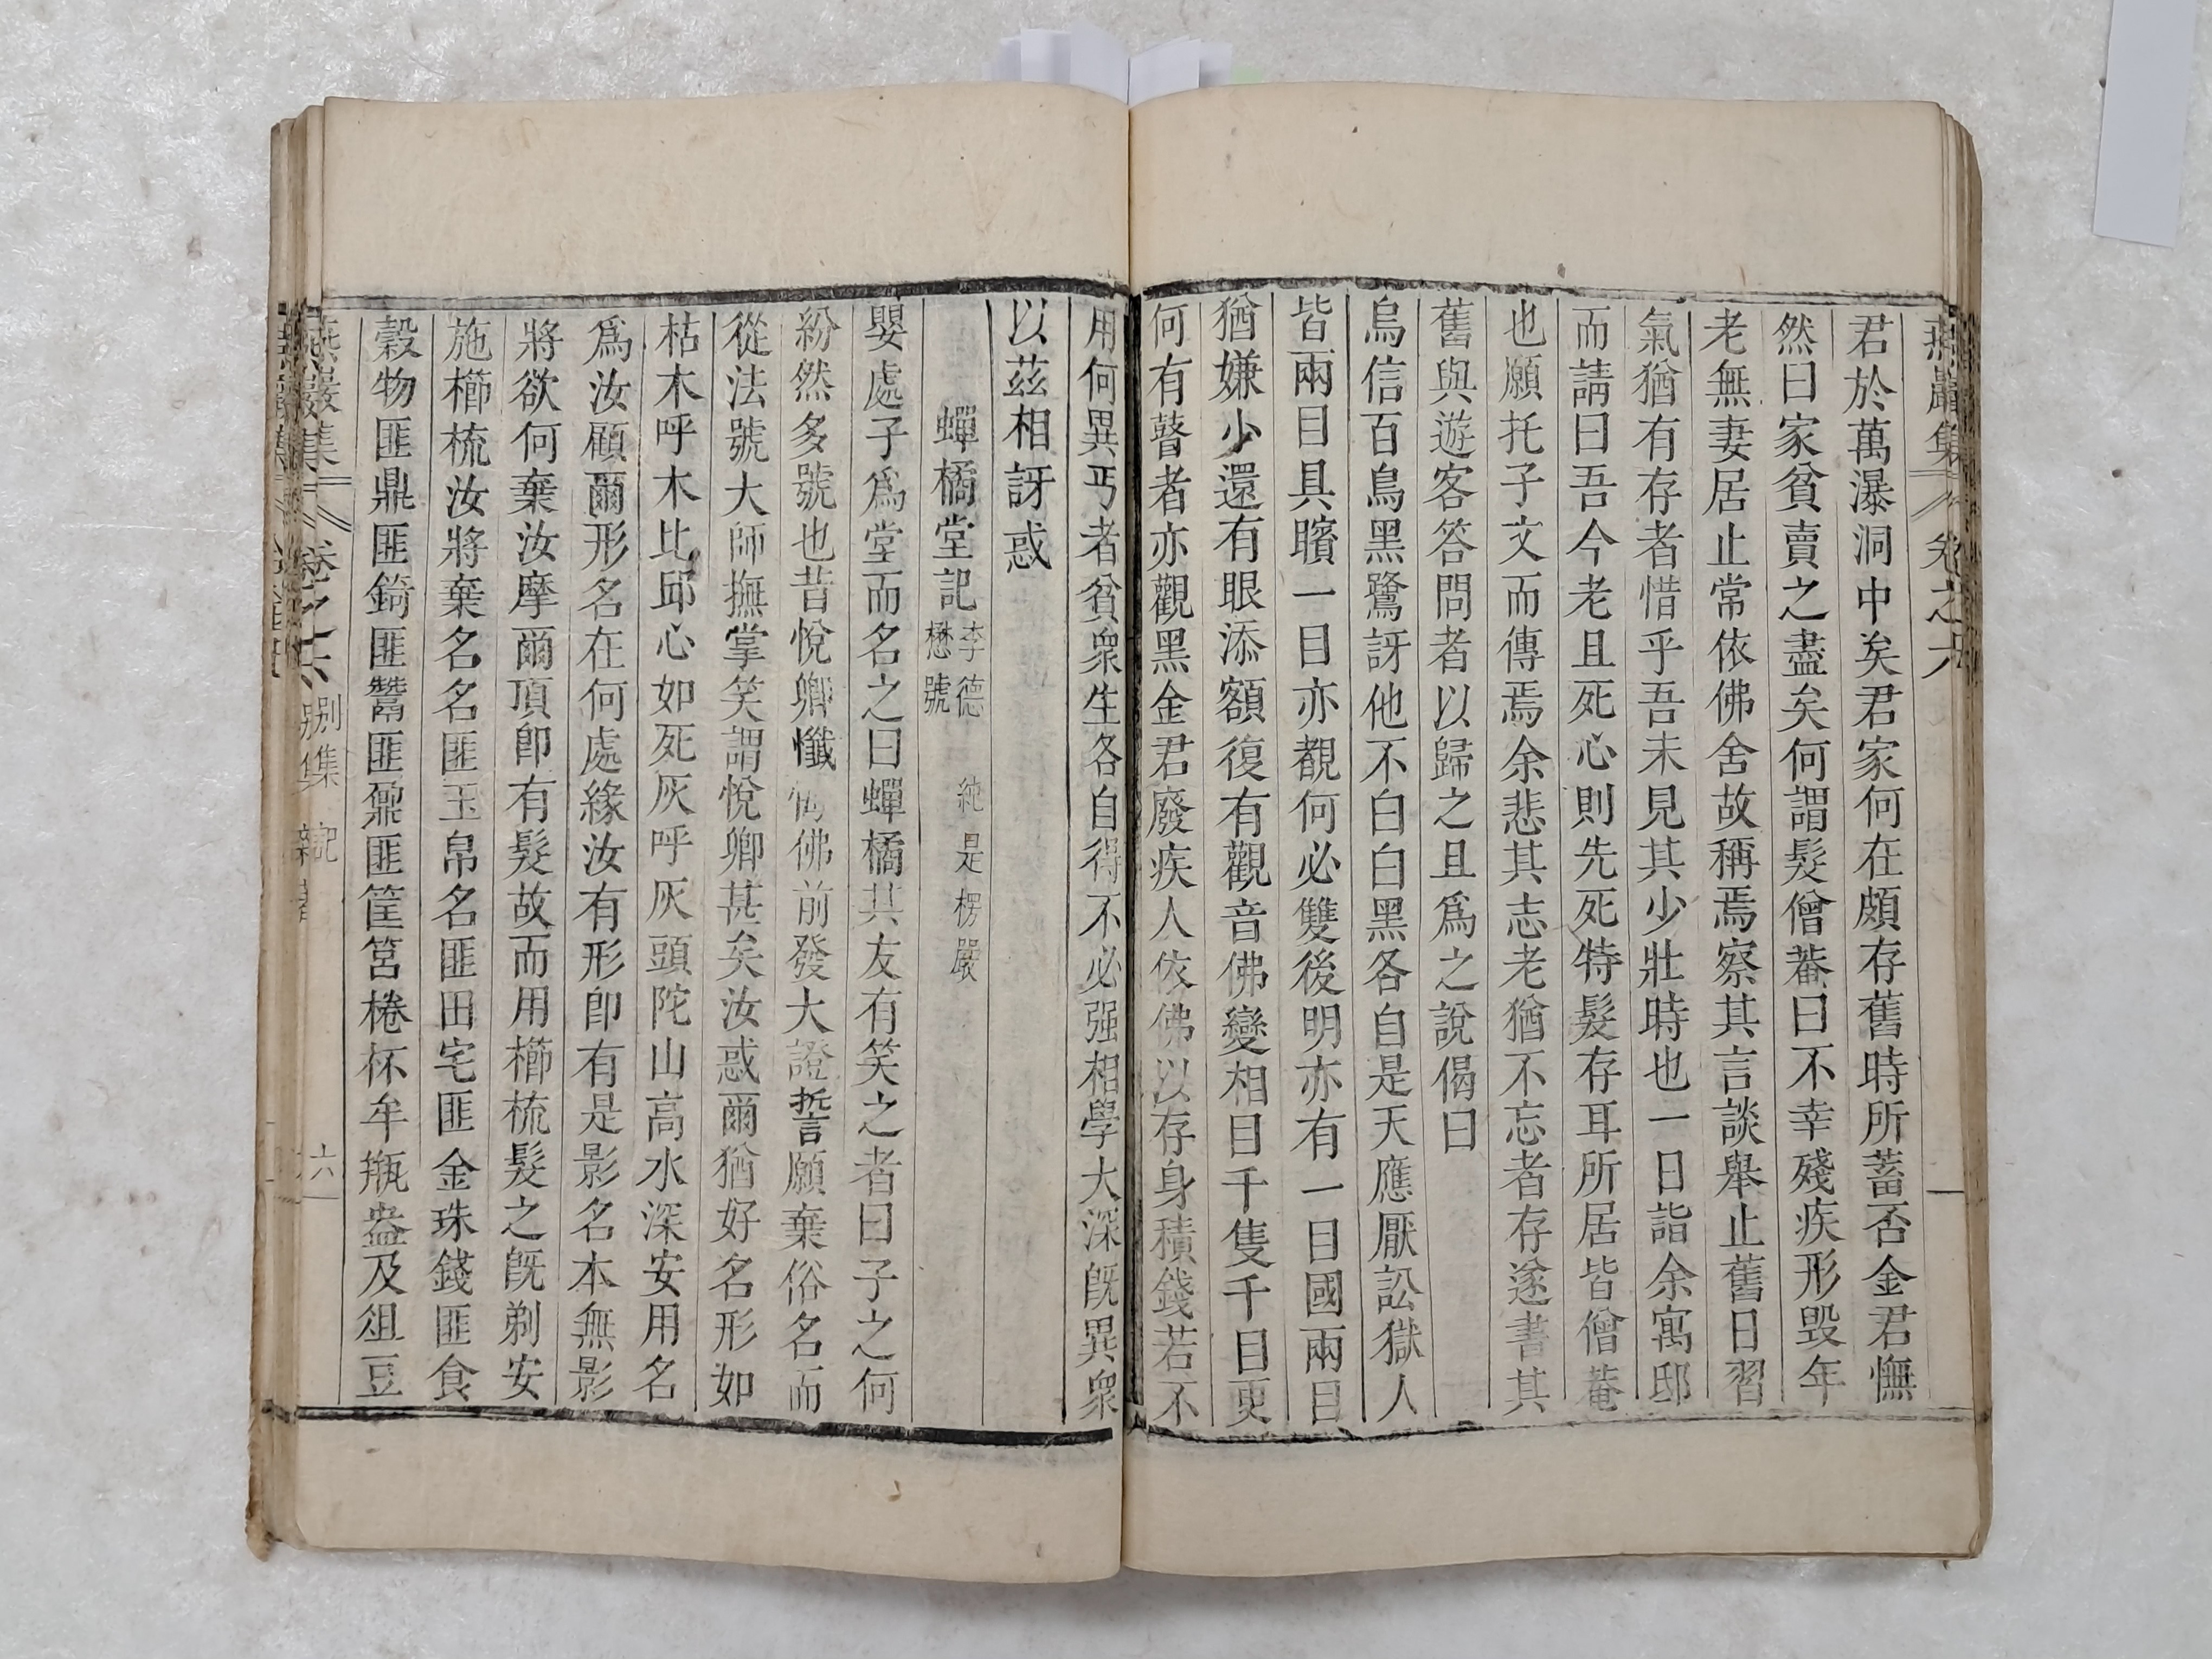 燕巖集 卷之六
君於萬瀑洞中矣君家何在頗存舊時所蓄否金君憮
然曰家貧賣之盡矣何謂髮僧菴曰不幸殘疾形毀年
老無妻居止常依佛舍故稱焉察其言談舉止舊日習
氣猶有存者惜乎吾未見其少壯時也一日詣余寓邸
而請曰吾今老且死心則先死特髮存耳所居皆僧菴
也願托子文而傳焉余悲其志老猶不忘者存遂書其
舊與遊客答問者以歸之且爲之說偈曰
烏信百鳥黑鷺訝他不白白黑各自是天應厭訟獄人
皆兩目具矉一目亦覩何必雙後明亦有一目國兩目
猶嫌少還有眼添額復有觀音佛變相目千隻千目更
何有瞽者亦觀黑金君廢疾人依佛以存身積錢若不
用何異丐者貧衆生各自得不必强相學大深旣異衆
以茲相訝惑
蟬橘堂記 李德懋號 純是楞嚴
嬰處子爲堂而名之曰蟬橘其友有笑之者曰子之何
紛然多號也昔悅卿懺悔佛前發大證誓願棄俗名而
從法號大師撫掌笑謂悅卿甚矣汝惑爾猶好名形如
枯木呼木比邱心如死灰呼灰頭陀山高水深安用名
爲汝顧爾形名在何處緣汝有形卽有是影名本無影
將欲何棄汝摩爾頂卽有髮故而用櫛梳髮之旣剃安
施櫛梳汝將棄名名匪玉帛名匪田宅匪金珠錢匪食
穀物匪鼎匪錡匪鬵匪鼐匪筐筥棬杯牟瓶盎及俎豆
燕巖集 卷之六 別集 記 六